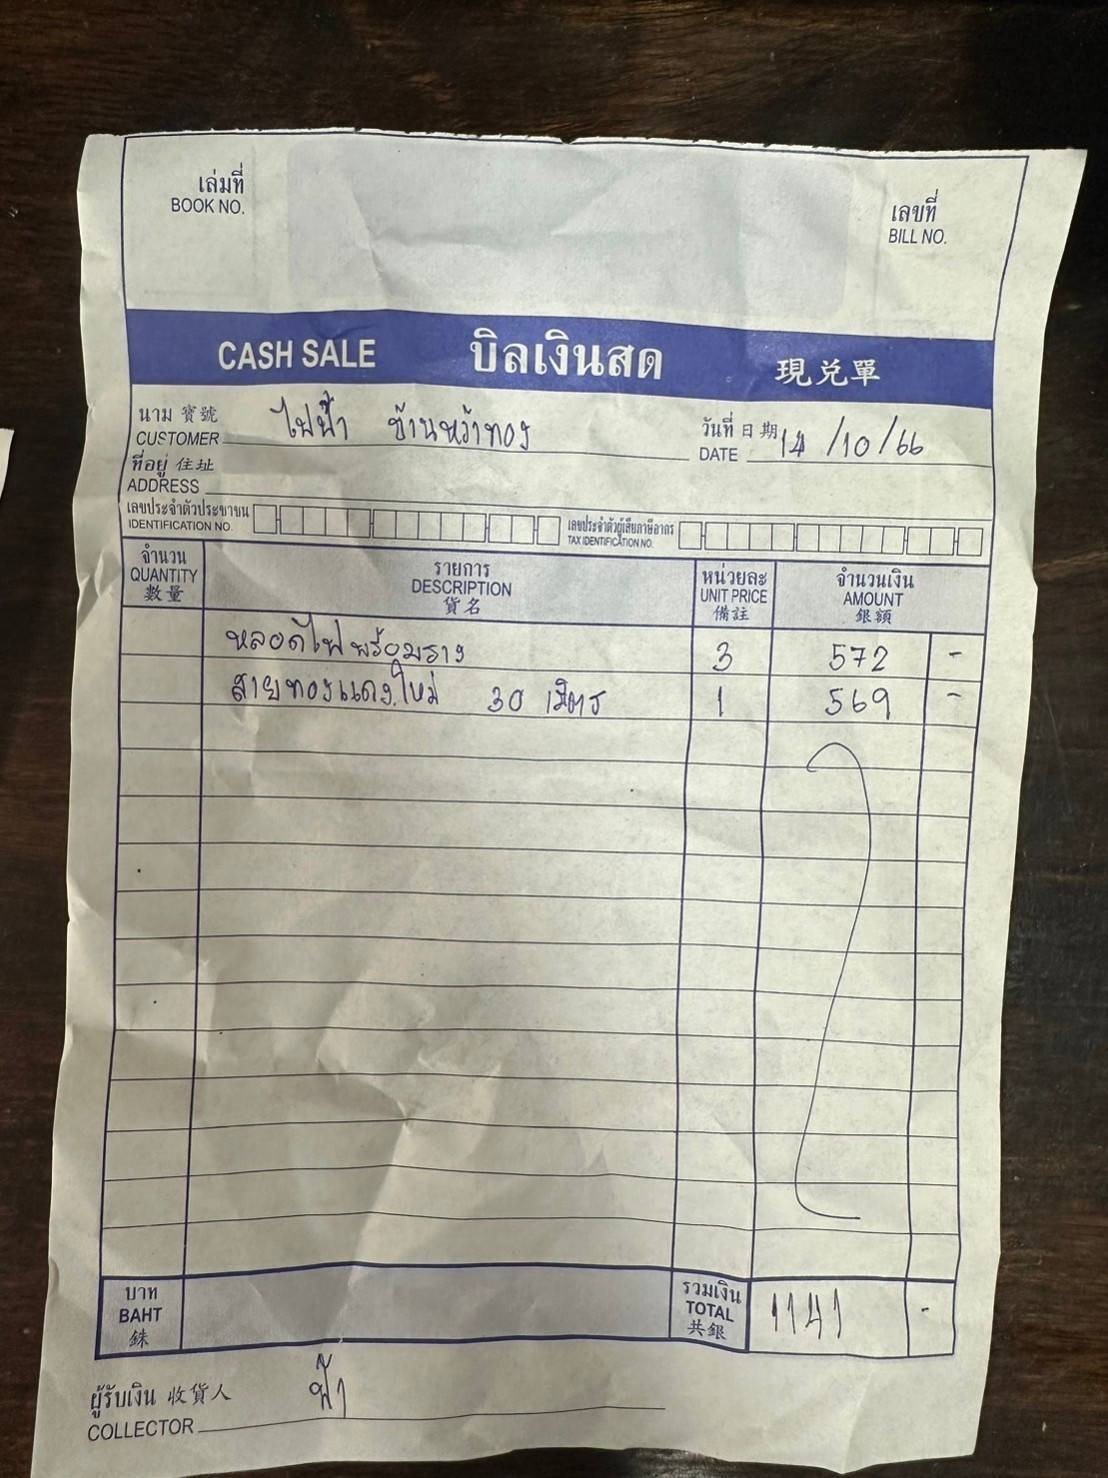 เล่มที่
BOOK NO.
เลขที่
BILL NO.
CASH SALE บิลเงินสด 現兑單
นาม 寶號 CUSTOMER ไฟฟ้า บ้านหว้าทอง
วันที่ 日期 DATE 14/10/66
ที่อยู่ 住址
ADDRESS
เลขประจำตัวประชาชน
IDENTIFICATION NO.
เลขประจำตัวผู้เสียภาษีอากร
TAX IDENTIFICATION NO.
จำนวน QUANTITY 數量
รายการ DESCRIPTION 貨名
หน่วยละ UNIT PRICE 備註
จำนวนเงิน AMOUNT 銀額
หลอดไฟพร้อมราง 3 572 -
สายทองแดงใหม่ 30 เมตร 1 569 -
บาท BAHT 銖
รวมเงิน TOTAL 共銀 1141 -
ผู้รับเงิน 收貨人 ฟ้า
COLLECTOR